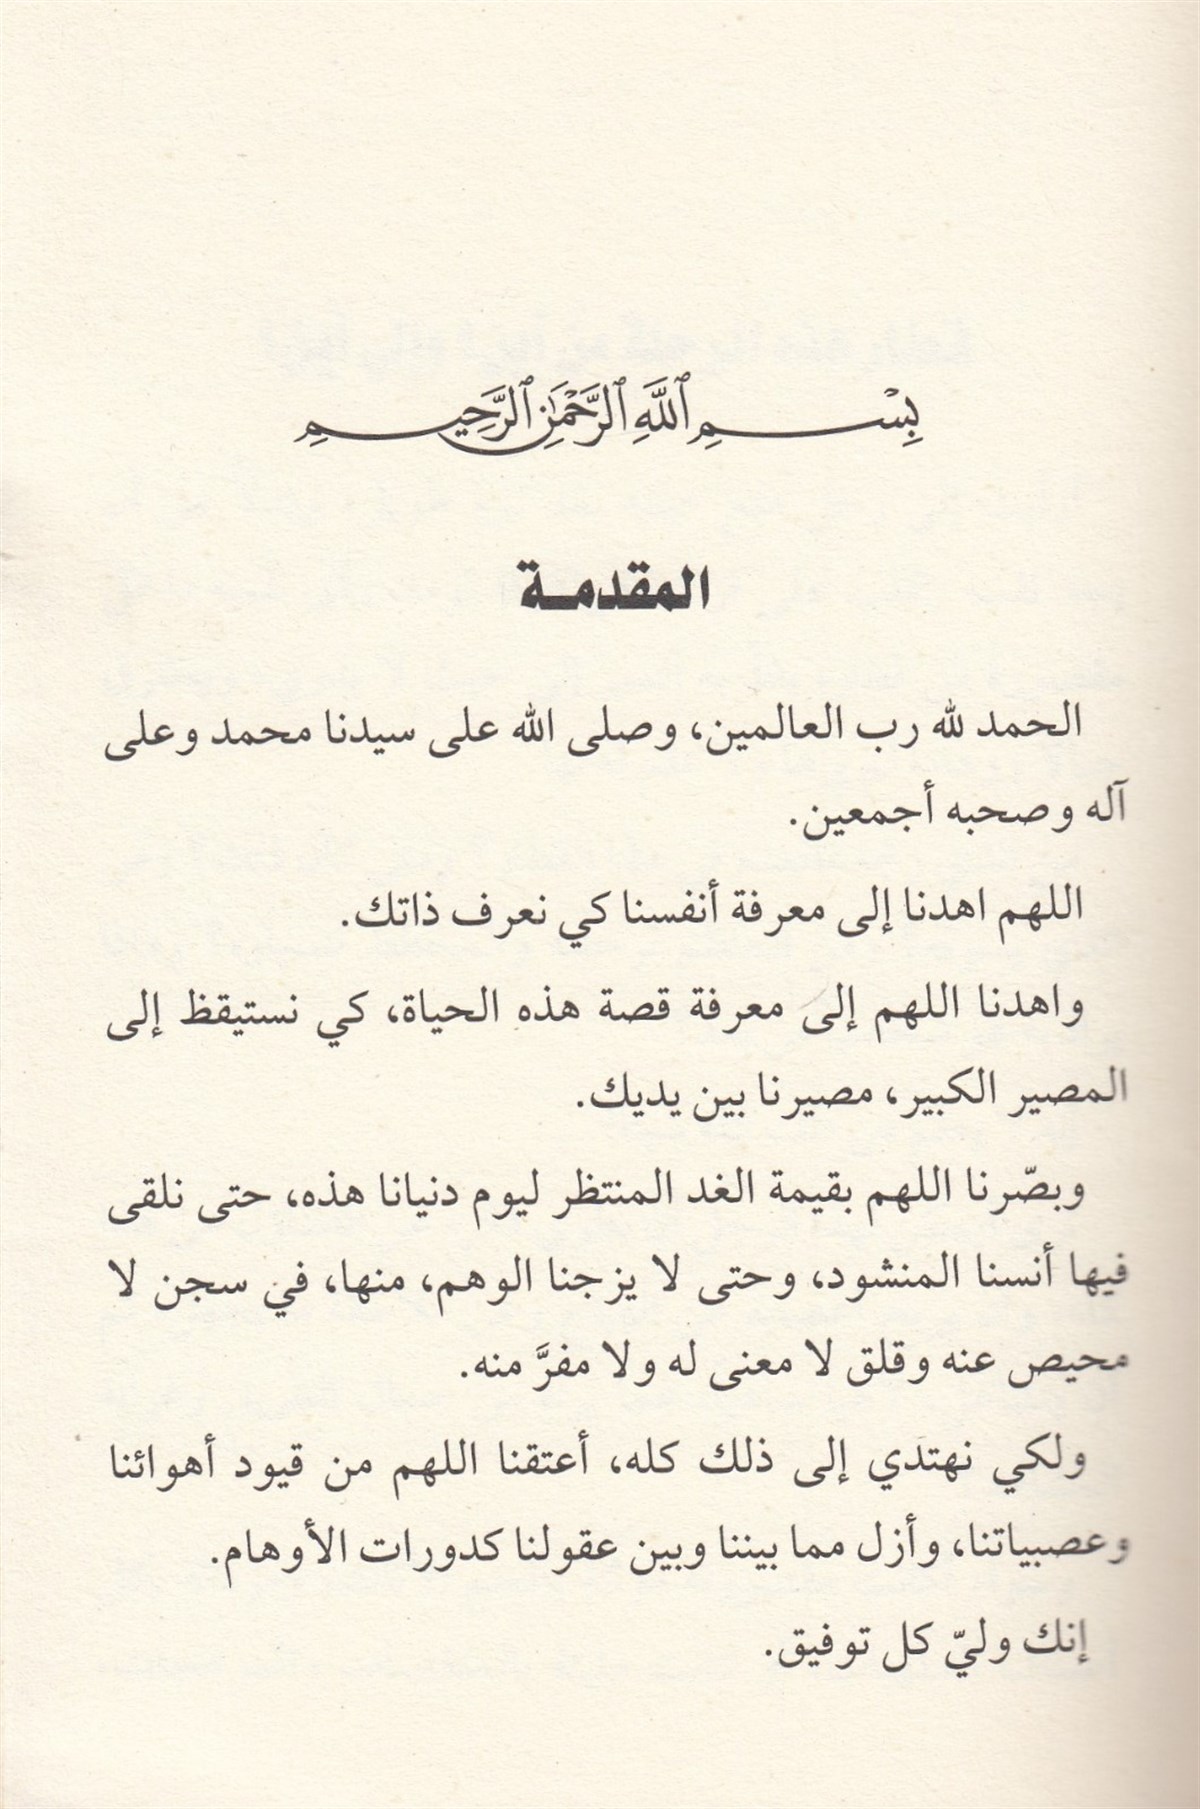 بِسْمِ ٱللَّهِ ٱلرَّحْمَٰنِ ٱلرَّحِيمِ
المقدمة
الحمد لله رب العالمين، وصلى الله على سيدنا محمد وعلى
آله وصحبه أجمعين.
اللهم اهدنا إلى معرفة أنفسنا كي نعرف ذاتك.
واهدنا اللهم إلى معرفة قصة هذه الحياة، كي نستيقظ إلى
المصير الكبير، مصيرنا بين يديك.
وبصّرنا اللهم بقيمة الغد المنتظر ليوم دنيانا هذه، حتى نلقى
فيها أنسنا المنشود، وحتى لا يزجنا الوهم، منها، في سجن لا
محيص عنه وقلق لا معنى له ولا مفرَّ منه.
ولكي نهتدي إلى ذلك كله، أعتقنا اللهم من قيود أهوائنا
وعصبياتنا، وأزل مما بيننا وبين عقولنا كدورات الأوهام.
إنك وليّ كل توفيق.